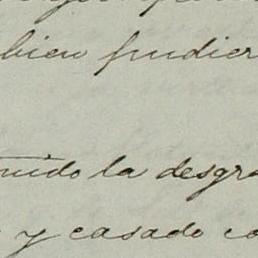 bien pudier
nido la desgra
y casado co